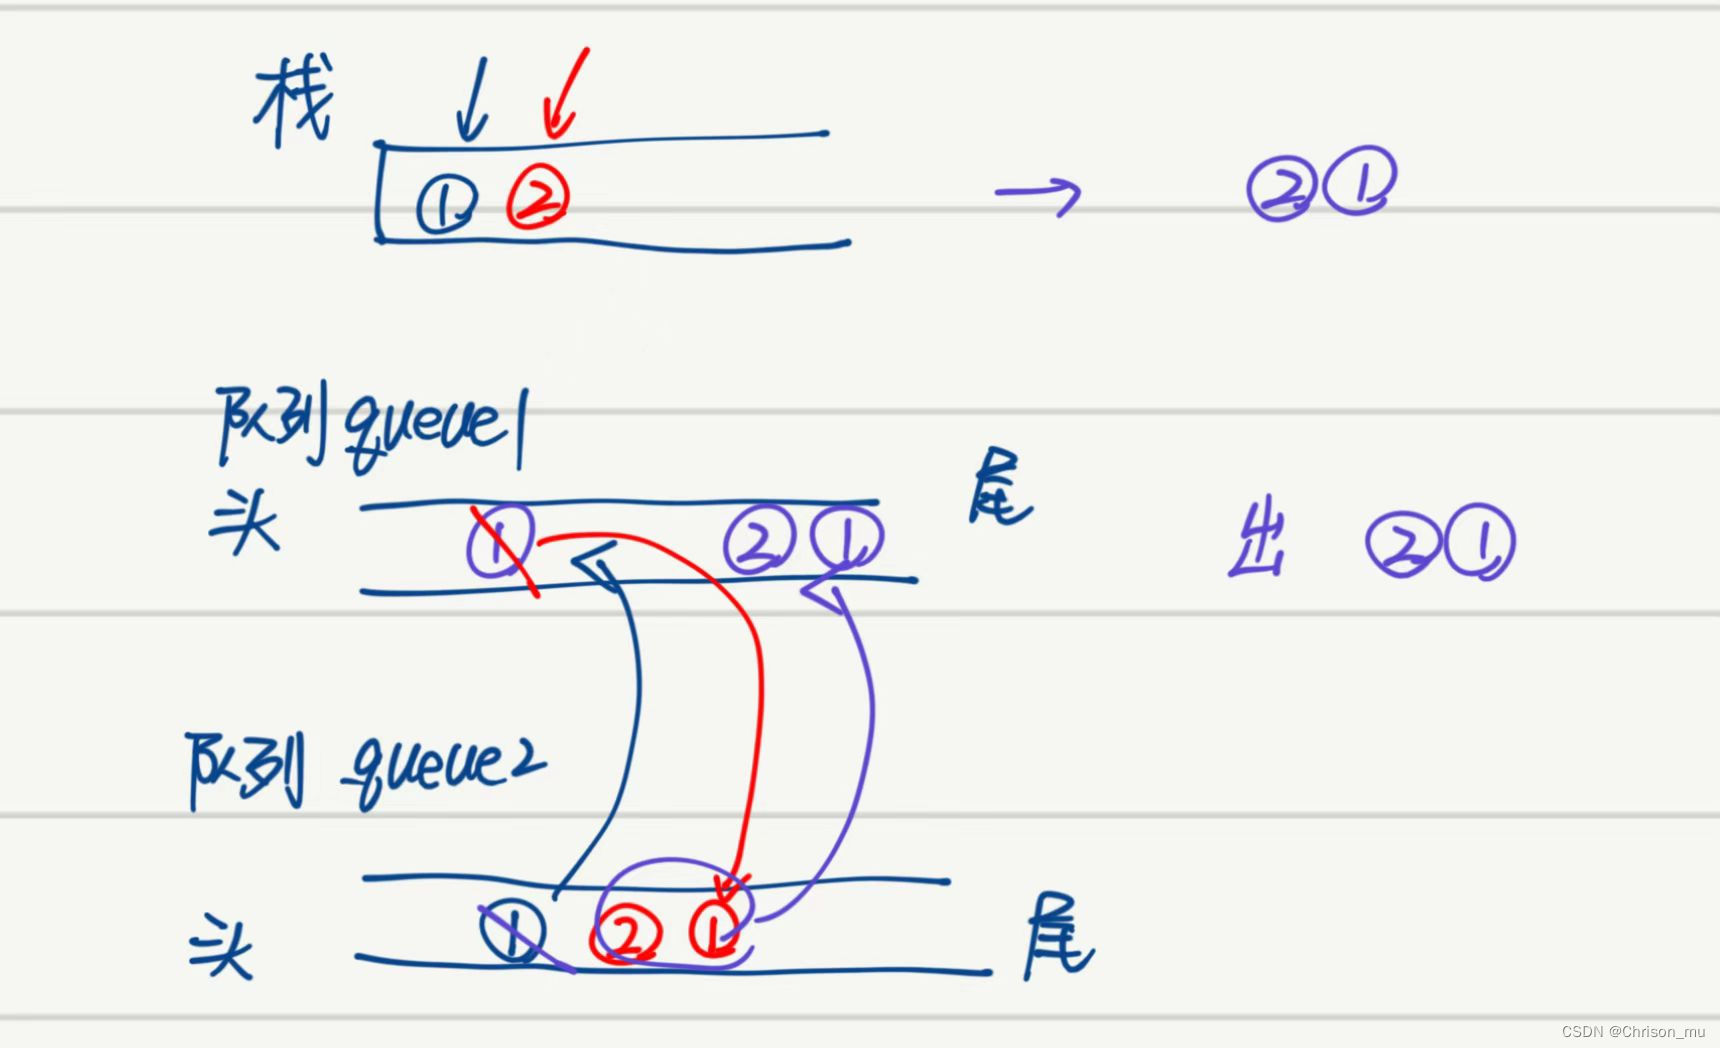 栈
① ② → ② ①
队列 queue1
头 ① ② ① 尾 出 ② ①
队列 queue2
头 ① ② ① 尾
CSDN @Chrison_mu